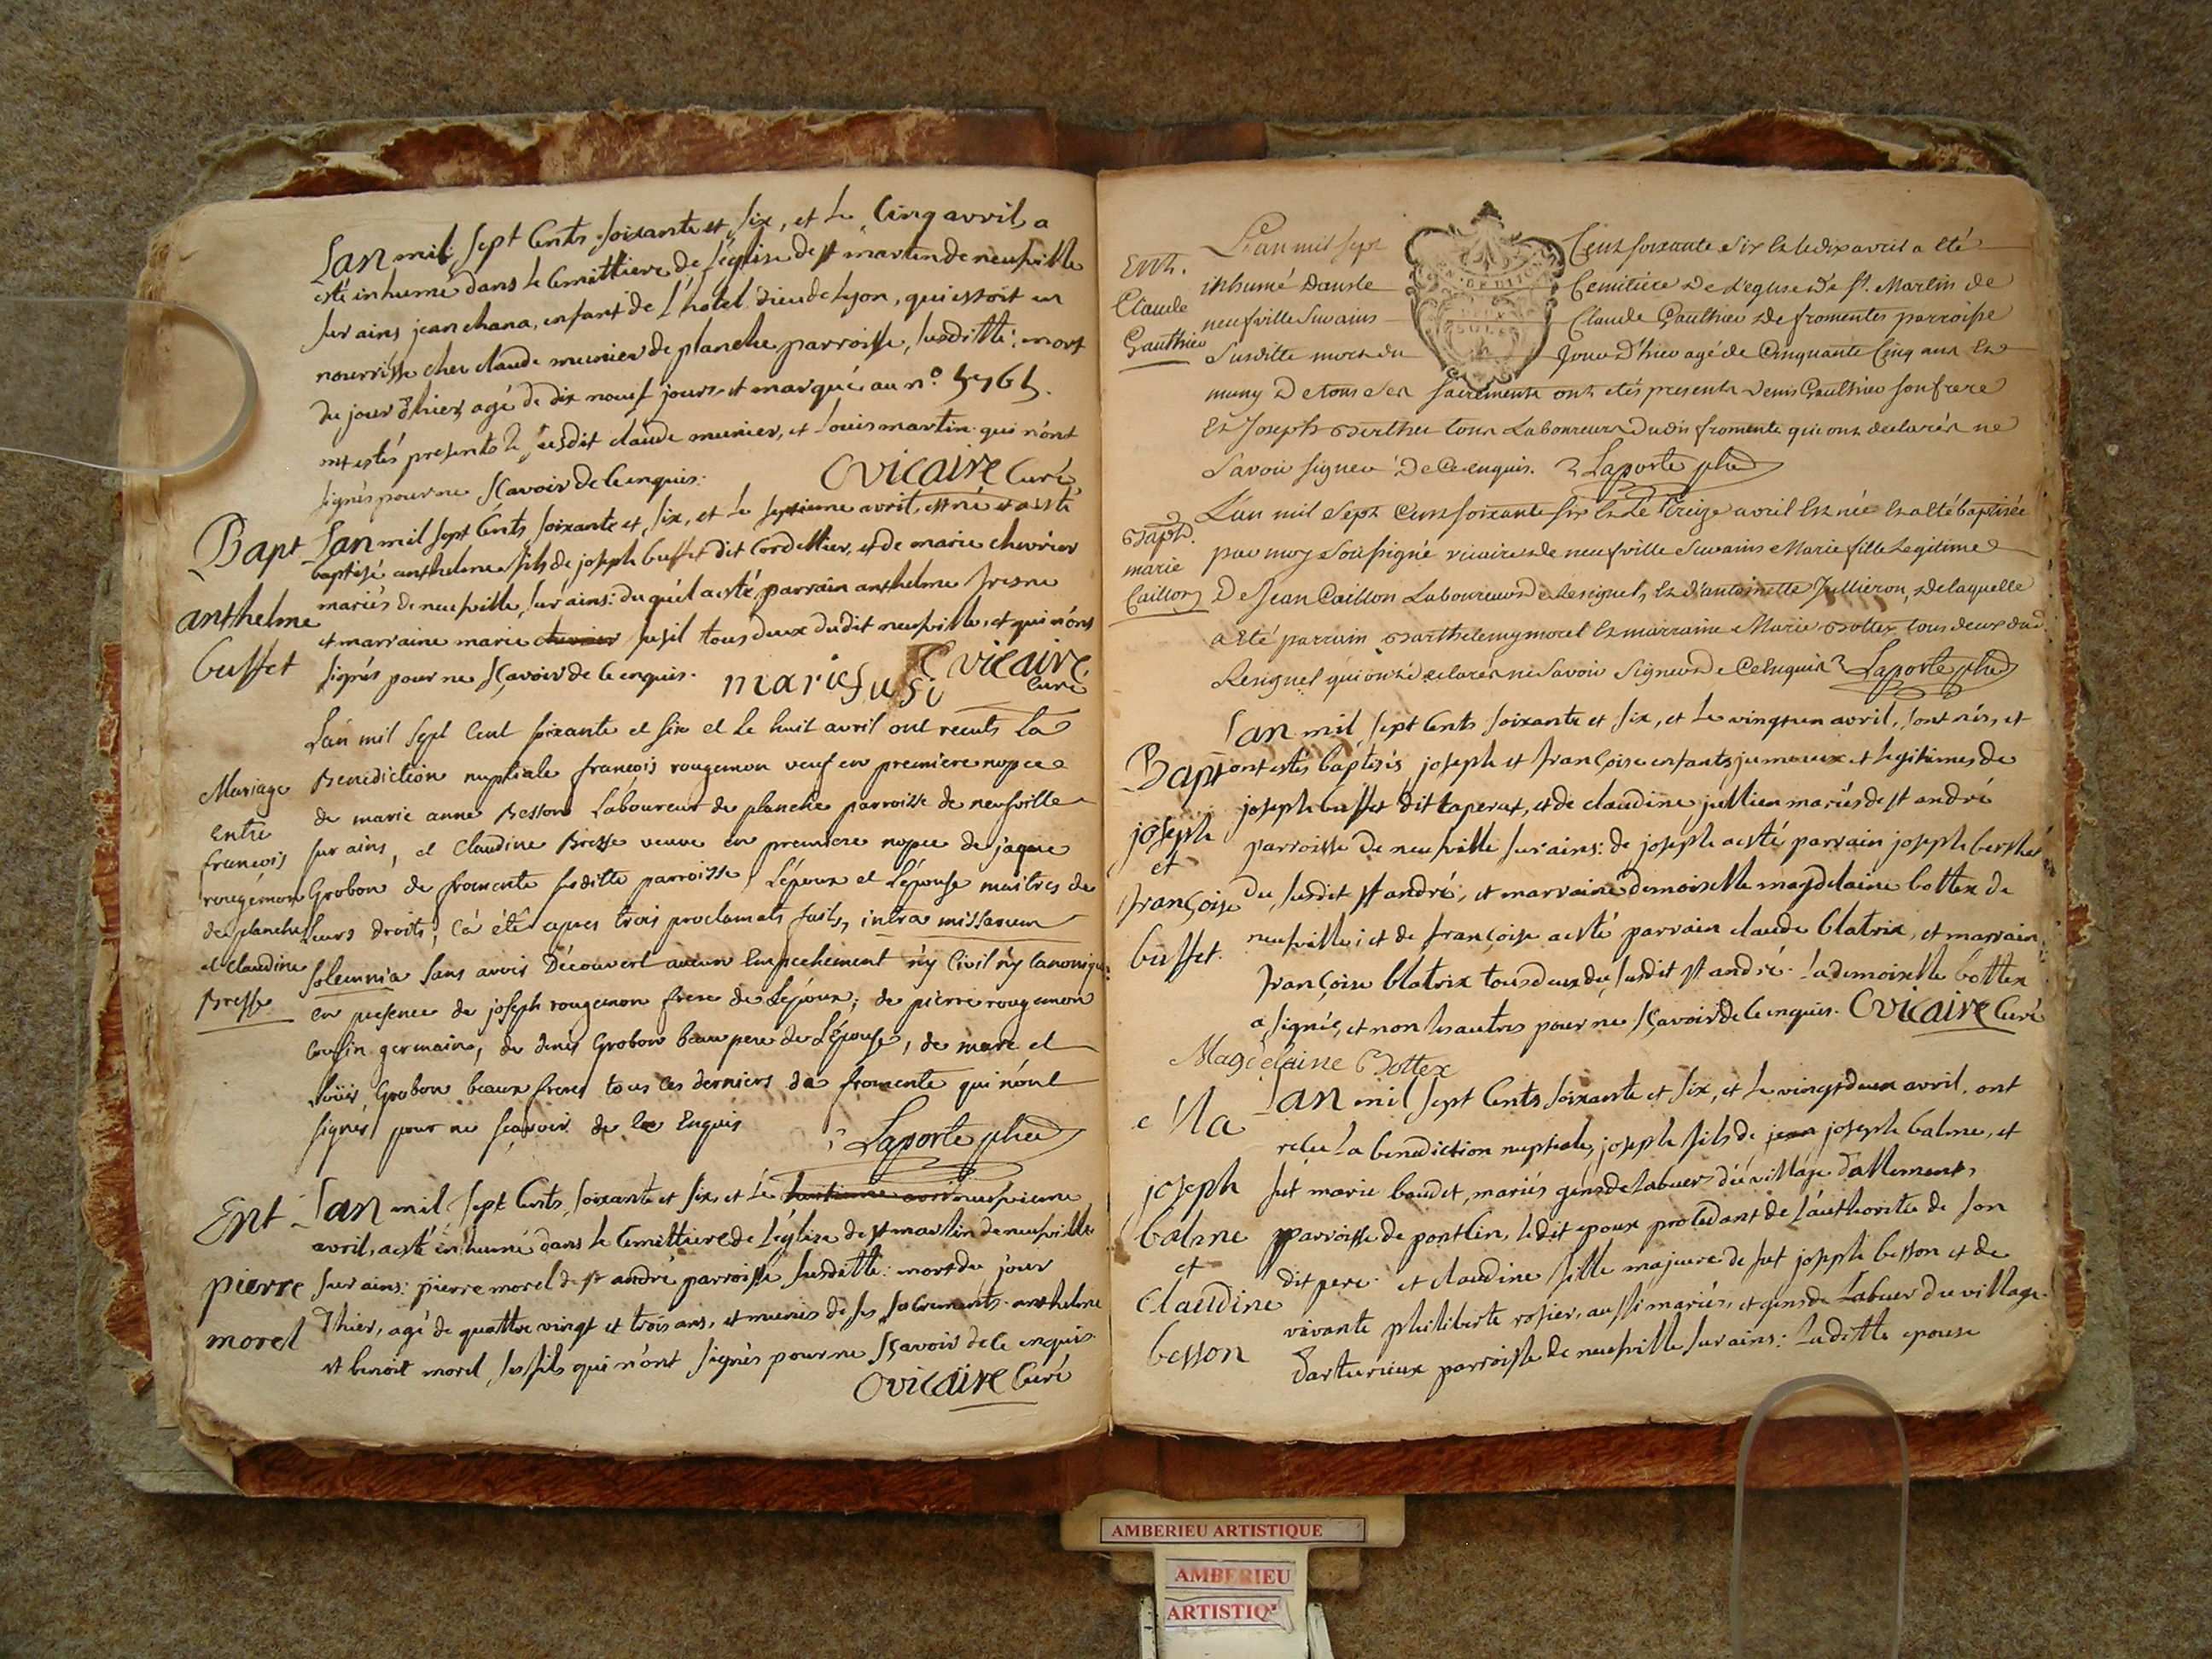 Lan mil, sept Cents soixante et six, et le Cinq avril, a
esté inhumé dans le Cemittiere de l'église de st martin de neufville
sur ains jean chana, enfant de l'hotel dieu de lyon, qui estoit en
nourrisse cher claude munier de planche parroisse, susditte: mort
du jour d'hier, agé de dix neuf jours et marqué au n°.
ont estés presents le susdit claude munier, et louis martin qui n'ont
signés pour ne sçavoir de ce enquis:
Ovicaire Curé
Bapt
anthelme
buffet
Lan mil sept Cents soixante et six, et le septieme avril, est né et a esté
baptisé anthelme fils de joseph buffet dit Cordellier, et de marie chevrier
mariés de neufville, sur ains: duquel a esté parrain anthelme fresne
et marraine marie chevrier fusil tous deux dudit neufville, et qui n'ont
signés pour ne sçavoir de ce enquis.
marie fusi
Ovicaire
Curé
Mariage
Entre
françois
rougemon
de planche
et claudine
Bresse
Lan mil sept Cent soixante et six et le huit avril ont receuts la
Benediction nuptiale françois rougemon veuf en premiere nopce
de marie anne Besson Laboureur de planche parroisse de neufville
sur ains, et Claudine Bresse veuve en premiere nopce de jaque
Grobon de fromente susditte parroisse, L'époux et L'épouse maitres de
leurs droits; Ca été apres trois proclamats faits, intra missarum
solemnia sans avoir Découvert aucun Empechement n'y Civil n'y Canonique
en presence de joseph rougemon frere de L'époux; de pierre rougemon
Cousin germain, de denis Grobon beau pere de L'épouse, de marc et
Loüis Grobon beaux freres tous ces derniers de fromente qui n'ont
signes pour ne sçavoir de Ce Enquis
Laporte ptre
Ent
pierre
morel
Lan mil sept Cents, soixante et six, et le huitieme avril neufvieme
avril, a esté inhumé dans le Cemittiere de l'église de st martin de neufville
sur ains: pierre morel de st andré parroisse susditte: mort du jour
d'hier, agé de quattre vingt et trois ans, et munis de ses sacrements. anthelme
et benoit morel, ses fils qui n'ont signés pour ne sçavoir de ce enquis
Ovicaire Curé
Ent.
Claude
Gauthier
L'an mil sept Cent soixante six Et le dix avril a été
inhumé dans le Cemitière de l'eglise de st. Martin de
neufville sur ains Claude Gaulthier de fromentes parroisse
Susditte mort du jour d'hier agé de Cinquante Cinq ans Et
muny De tous ses sacrements ont étés presents Denis Gaulthier son frere
Et Joseph Berthet tous Laboureurs Dudit fromente qui ont declarés ne
Savoir signer De Ce enquis. Laporte ptre
Bapt.
marie
Caillon
L'an mil Sept Cent soixante six Et Le treize avril Est née Et a été baptisée
par moy Soussigné vicaire de neufville Sur ains Marie fille Legitime
De Jean Caillon Laboureur de Resignel, Et d'antoinette Jullieron, de laquelle
a été parrain Barthelemy morel Et marraine Marie Bottex tous deux dud.
Resignel qui ont déclarés ne Savoir Signer De Ce Enquis Laporte ptre
Bapt
joseph
et
françoise
buffet.
Lan mil sept Cents soixante et six, et le vingt un avril, sont nés, et
ont estés baptisés, joseph et françoise enfants jumeaux et legitimes de
joseph buffet dit taperat, et de claudine jullien mariés de st andré
parroisse de neufville sur ains: de joseph a esté parrain joseph berthet
du, susdit st andré, et marraine demoiselle magdelaine bottex de
neufville; et de françoise a esté parrain claude blatrix, et marraine
françoise blatrix tous deux du, susdit st andré. la demoiselle bottex
a signée, et non les autres pour ne sçavoir de ce enquis. Ovicaire Curé
Magdelaine Bottex
Ma
joseph
balme
et
Claudine
besson
Lan mil sept Cents soixante et six, et le vingt deux avril, ont
recu la benediction nuptiale, joseph fils de jean joseph balme, et
fut marie baudet, mariés gens de labeur du village d'allement,
parroisse de pontcin, ledit epoux procedant de l'authorité de son
dit pere: et claudine fille majeure de fut joseph besson et de
vivante philiberte rosier, aussi mariés, et gens de Labeur du village
d'arturieux parroisse de neufville sur ains: laditte epouse
AMBERIEU ARTISTIQUE
AMBERIEU
ARTISTIQ